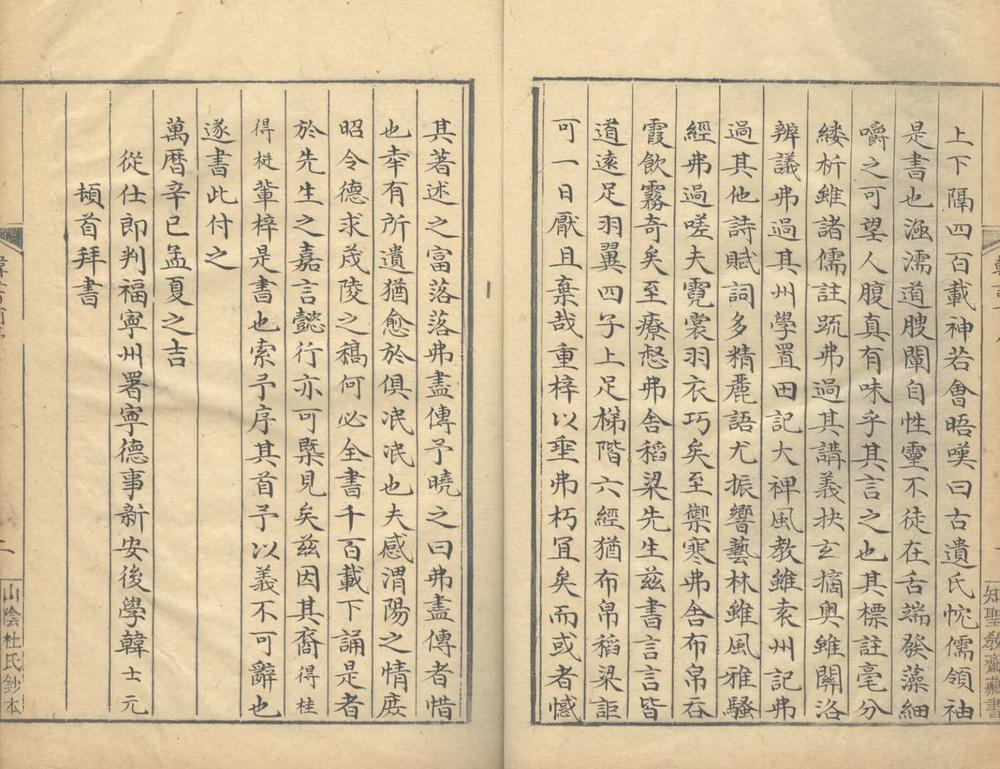 上下隔四百載神若會晤嘆曰古遺氏忱儒領袖
是書也涵濡道腴闡自性靈不徒在舌端發藻細
嚼之可望人腹真有味乎其言之也其標註毫分
縷析雖諸儒註疏弗過其講義抉玄摘奥雖關洛
辨議弗過其州學置田記大裨風教雖袁州記弗
過其他詩賦詞多精麗語尤振響藝林雖風雅騷
經弗過嗟夫霓裳羽衣巧矣至禦寒弗舎布帛吞
霞飲霧奇矣至療愁弗舎稻梁先生兹書言言皆
道遠足羽翼四子上足梯階六經猶布帛稻梁詎
可一日厭且棄哉重梓以垂弗朽冝矣而或者憾
其著述之富落落弗盡傳予曉之曰弗盡傳者惜
也幸有所遺猶愈於俱泯泯也夫感渭陽之情庻
昭令德求茂陵之稿何必全書千百載下誦是者
於先生之嘉言懿行亦可槩見矣兹因其裔得桂
得梃輩梓是書也索予序其首予以義不可辭也
遂書此付之
萬曆辛巳孟夏之吉
從仕郎判福寧州署寧德事新安後學韓士元
頓首拜書
二
山陰杜氏鈔本
知聖教齋藏書